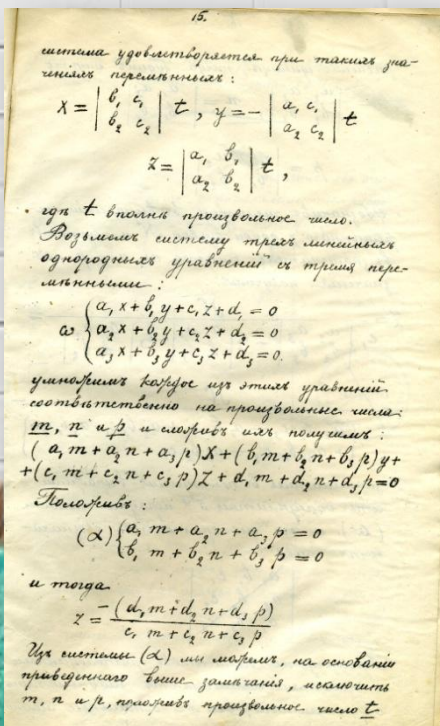 15.
система удовлетворяется при такихъ зна-
ченіяхъ перемѣнныхъ:
x = | b₁ c₁ ; b₂ c₂ | t , y = − | a₁ c₁ ; a₂ c₂ | t
z = | a₁ b₁ ; a₂ b₂ | t ,
гдѣ t вполнѣ произвольное число.
Возьмемъ систему трехъ линейныхъ
однородныхъ уравненій съ тремя пере-
мѣнными:
ω { a₁x + b₁y + c₁z + d₁ = 0
a₂x + b₂y + c₂z + d₂ = 0
a₃x + b₃y + c₃z + d₃ = 0.
умножимъ каждое изъ этихъ уравненій
соотвѣтственно на произвольные числа:
m, n и p и сложивъ ихъ получимъ:
(a₁m + a₂n + a₃p)x + (b₁m + b₂n + b₃p)y +
+ (c₁m + c₂n + c₃p)z + d₁m + d₂n + d₃p = 0
Положивъ:
(α) { a₁m + a₂n + a₃p = 0
b₁m + b₂n + b₃p = 0
и тогда
z = −(d₁m + d₂n + d₃p) / c₁m + c₂n + c₃p
Изъ системы (α) мы можемъ, на основаніи
приведеннаго выше замѣчанія, исключить
m, n и p, положивъ произвольное число t